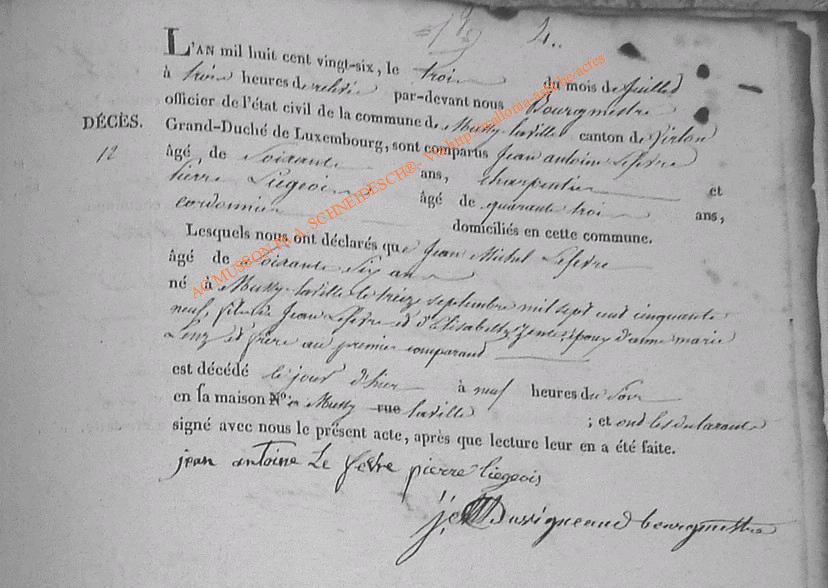 4..
L'AN mil huit cent vingt-six, le trois du mois de juillet
à trois heures de relevée par-devant nous Bourgmestre
officier de l'état civil de la commune de Mussy-laville canton de Virton
DÉCÈS. Grand-Duché de Luxembourg, sont comparus Jean antoine Lefevre
12 âgé de Soixante ans, charpentier et
pierre Liégeois âgé de quarante trois ans,
cordonnier domiciliés en cette commune.
Lesquels nous ont déclarés que Jean Michel Lefevre
âgé de Soixante Six ans
né à Mussy-laville le treize septembre mil sept cent cinquante
neuf, fils de Jean Lefevre et d'Elisabeth époux d'anne marie
Lenz et frere au premier comparant
est décédé le jour d'hier à neuf heures du soir
en sa maison N° à Mussy rue laville ; et ont les declarants
signé avec nous le présent acte, après que lecture leur en a été faite.
jean antoine Le fevre pierre liegeois
bourgmestre
AC MUSSON P/ A. SCHNEIDESCH®